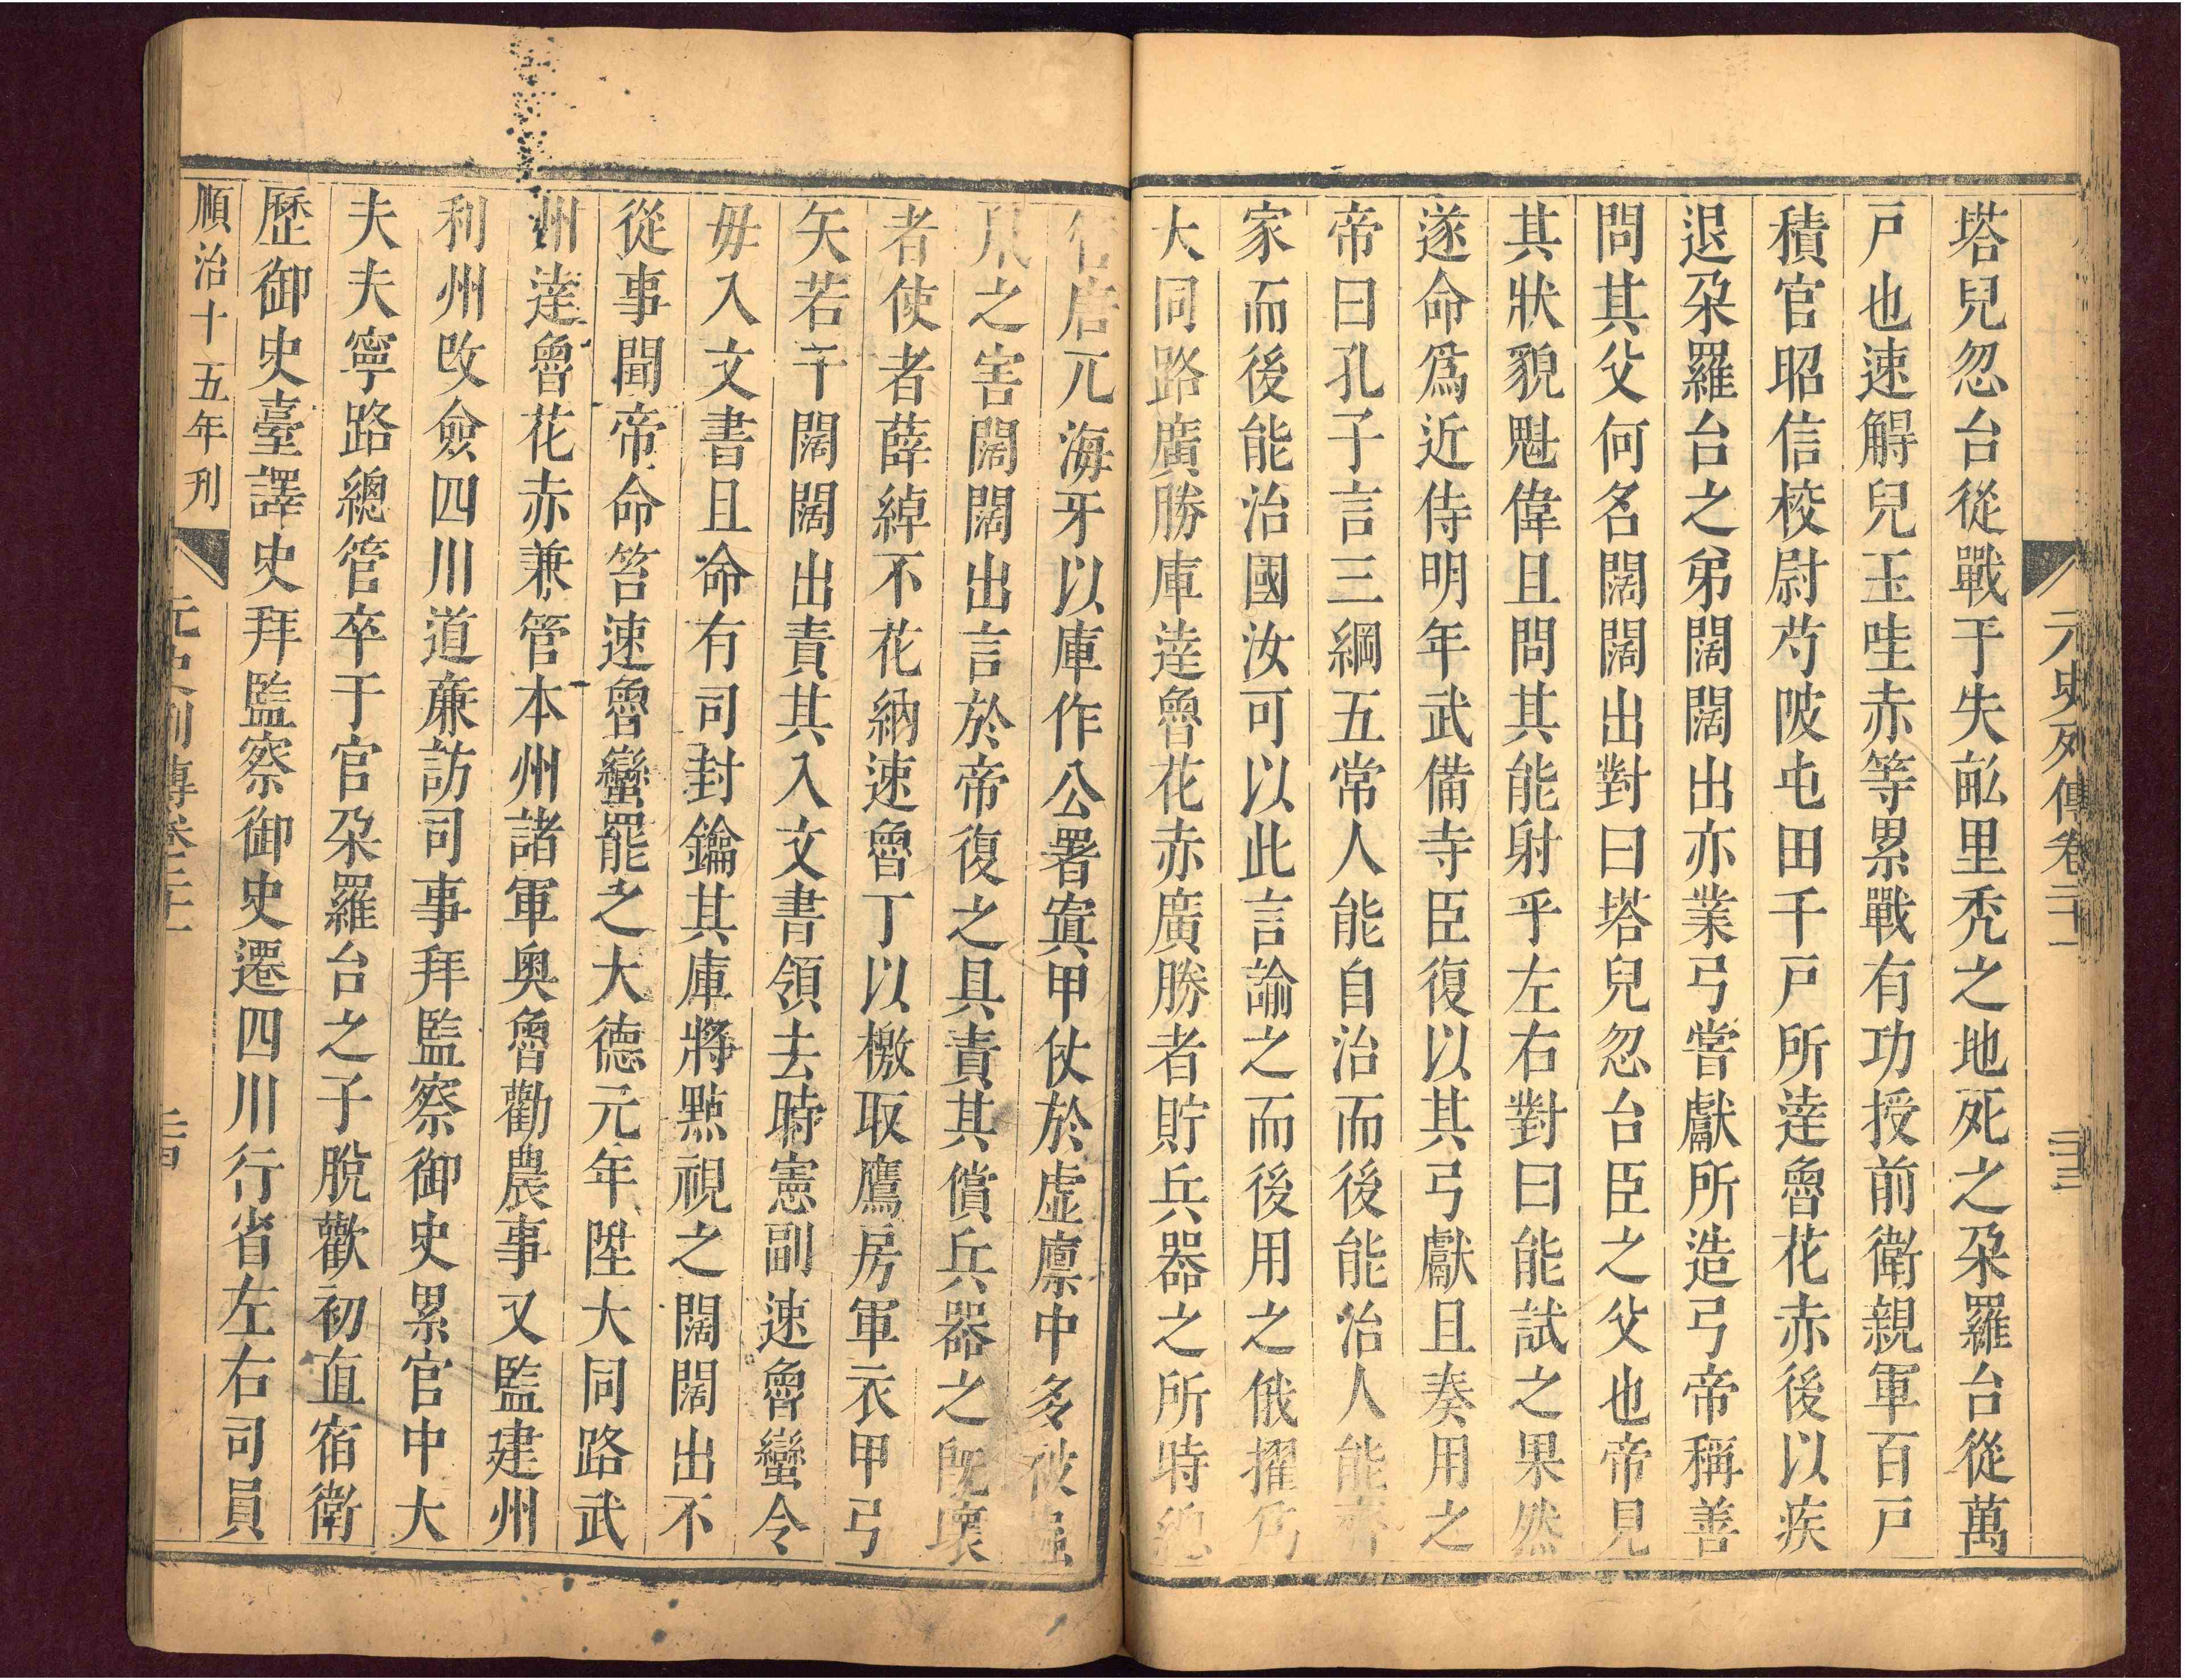 元史列傳卷二十一
三十三
塔兒忽台從戰于失畆里秃之地死之朶羅台從萬
戸也速䚟兒玉哇赤等累戰有功授前衛親軍百戸
積官昭信校尉芍陂屯田千戸所達魯花赤後以疾
退朶羅台之弟闊闊出亦業弓嘗獻所造弓帝稱善
問其父何名闊闊出對曰塔兒忽台臣之父也帝見
其狀貌魁偉且問其能射乎左右對曰能試之果然
遂命爲近侍明年武備寺臣復以其弓獻且奏用之
帝曰孔子言三綱五常人能自治而後能治人能齊
家而後能治國汝可以此言諭之而後用之俄擢爲
大同路廣勝庫達魯花赤廣勝者貯兵器之所時總
管唐兀海牙以庫作公署寘甲仗於虛廪中多被
之害闊闊出言於帝復之具責其償兵器之旣壞
者使者薛綽不花納速魯丁以檄取鷹房軍衣甲弓
矢若干闊闊出責其入文書領去時憲副速魯蠻令
毋入文書且命有司封鑰其庫將點視之闊闊出不
從事聞帝命笞速魯蠻罷之大德元年陞大同路武
州達魯花赤兼管本州諸軍奥魯勸農事又監建州
利州改僉四川道廉訪司事拜監察御史累官中大
夫夫寧路總管卒于官朶羅台之子脫歡初直宿衛
歷御史臺譯史拜監察御史遷四川行省左右司員
順治十五年刊
元史列傳卷二十一
三十四